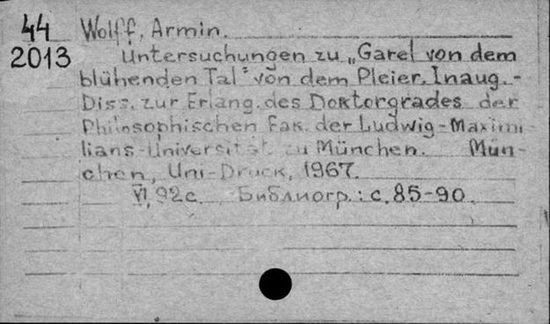 44 Wolff, Armin.
2013 Untersuchungen zu „Garel von dem
blühenden Tal" von dem Pleier. Inaug.-
Diss. zur Erlang. des Doktorgrades der
Philosophischen Fak. der Ludwig-Maximi-
lians-Universität zu München. Mün-
chen, Uni-Druck, 1967.
VI, 92 с. Библиогр.: с. 85-90.